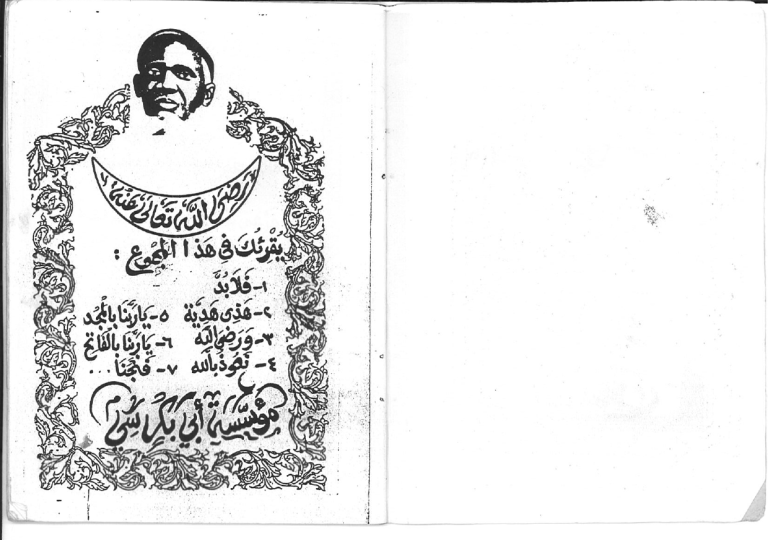 رَضِيَ اللَّهُ تَعَالَى عَنْهُ
يُقْرِئُكَ فِي هَذَا الْمَجْمُوعِ :
١- فَلَابُدَّ
٢- هَذِى هَدِيَّة ٥- يَارَبَّنَا بِالْمُجْد
٣- وَرَضِىَ اللَّه ٦- يَارَبَّنَا بِالْفَاتِحِ
٤- نَعُوذُ بِاللَّه ٧- فَنَجِّنَا ...
مُؤَسَّسَة أَبِي بَكْر سِي